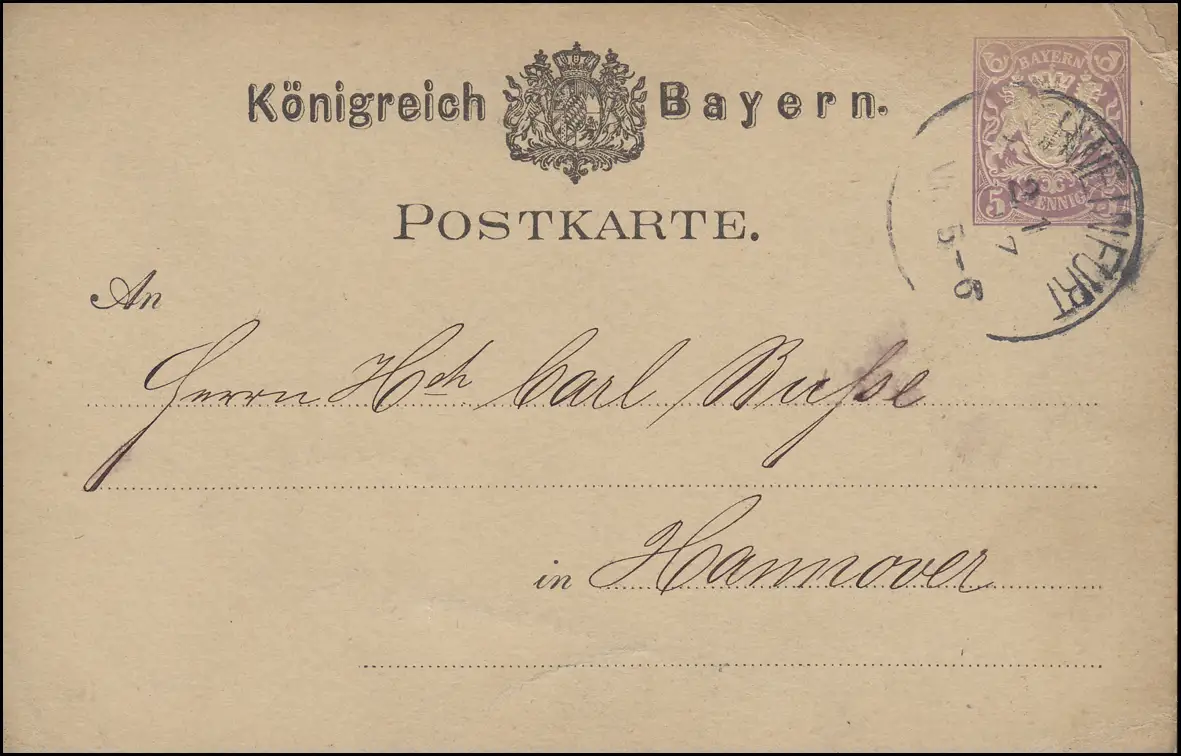 Königreich Bayern.
BAYERN
5 PFENNIG
SCHWEINFURT
12 1
7
5-6
POSTKARTE.
An
Herrn Hch Carl Buße
in Hannover